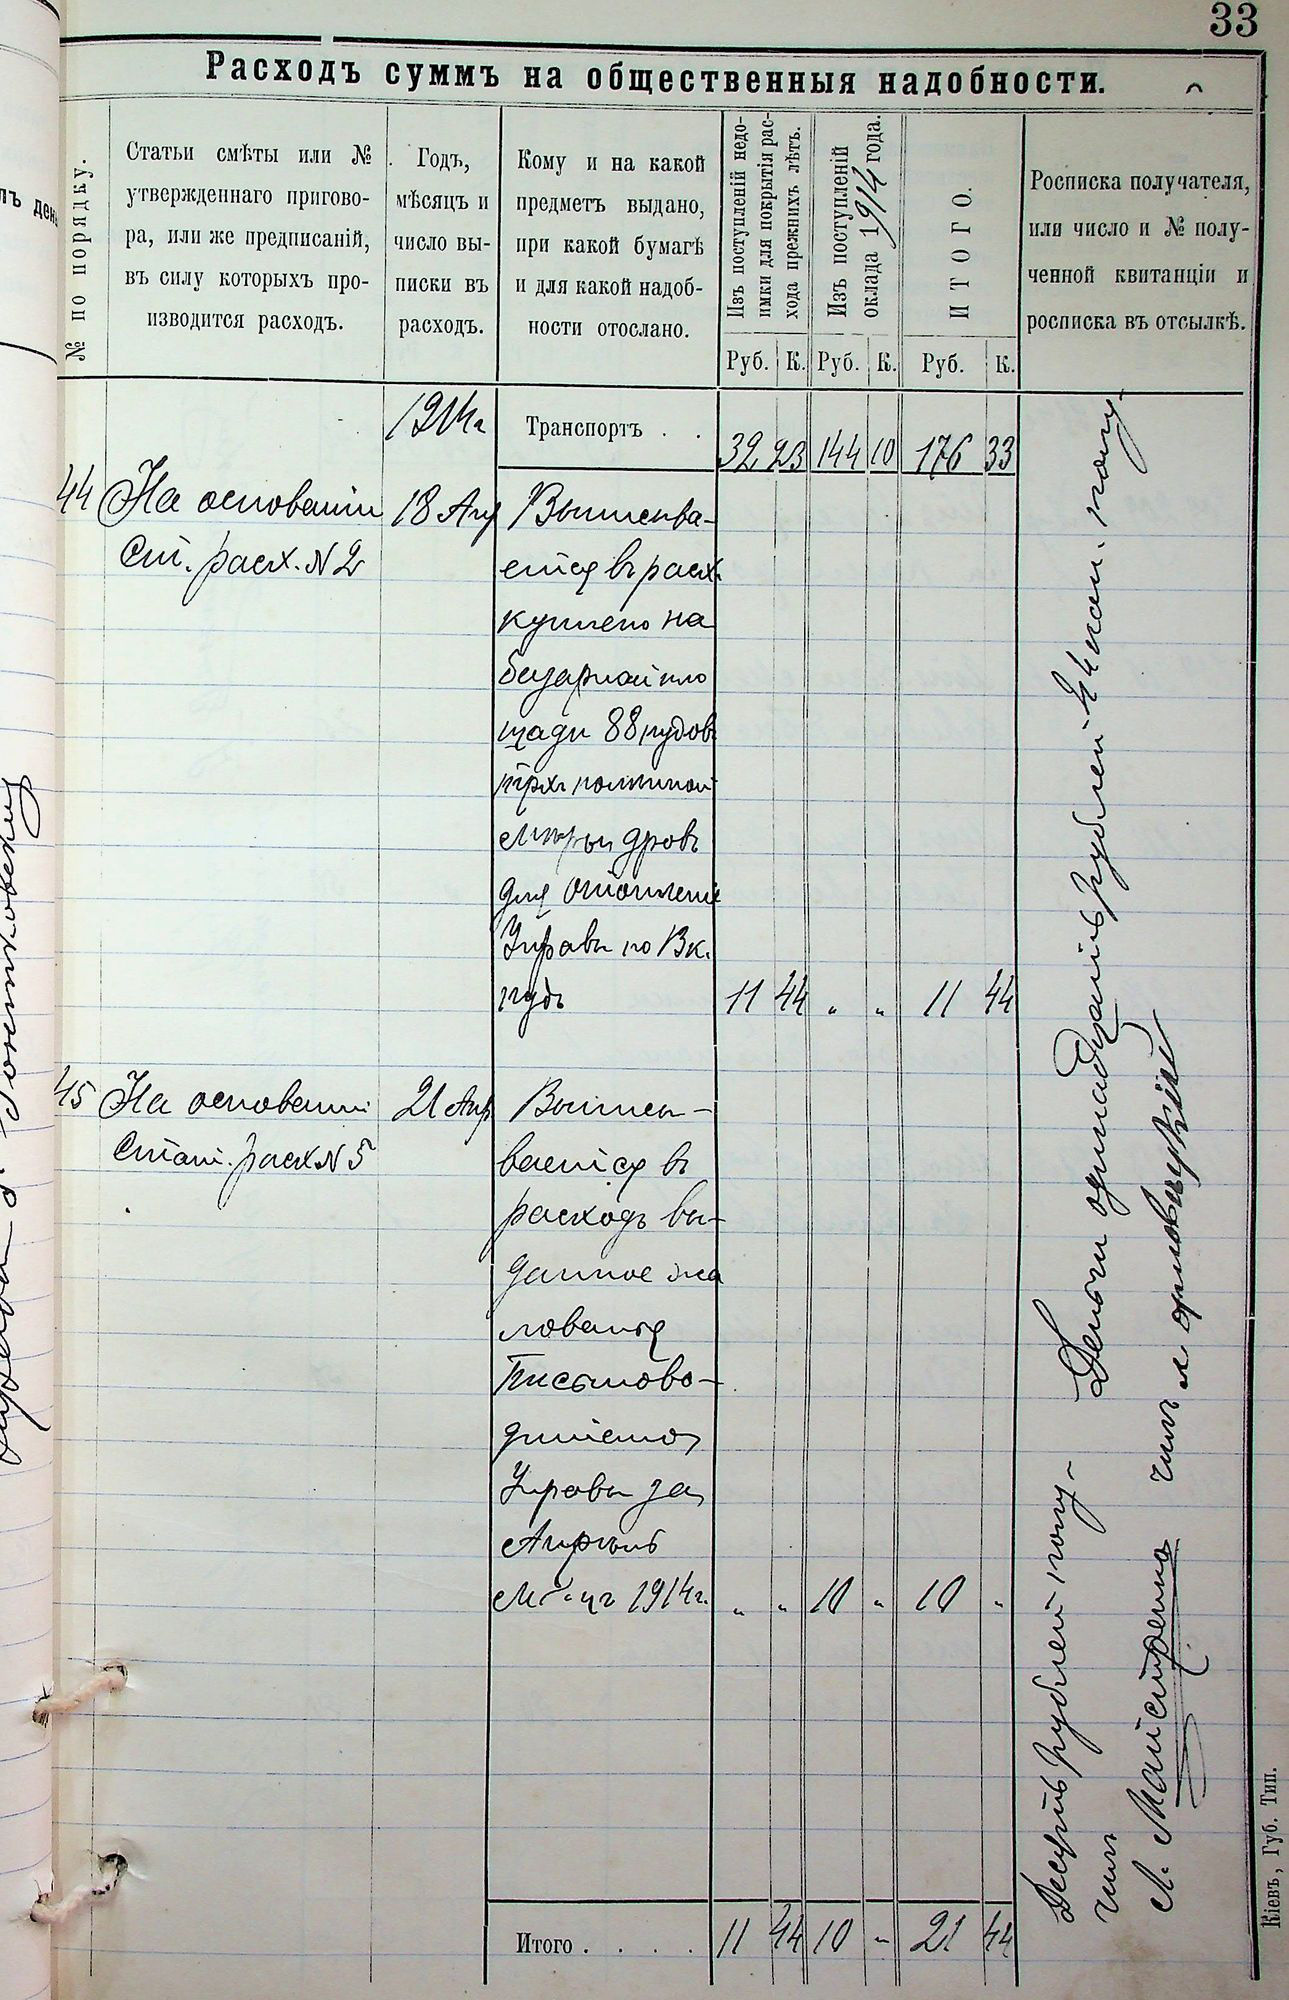 33
Расходъ суммъ на общественныя надобности.
№ по порядку.
Статьи смѣты или №
утвержденнаго пригово-
ра, или же предписаній,
въ силу которыхъ про-
изводится расходъ.
Годъ,
мѣсяцъ и
число вы-
писки въ
расходъ.
Кому и на какой
предметъ выдано,
при какой бумагѣ
и для какой надоб-
ности отослано.
Изъ поступленій недо-
имки для покрытія рас-
хода прежнихъ лѣтъ.
Изъ поступленій
оклада 1914 года.
ИТОГО.
Росписка получателя,
или число и № полу-
ченной квитанціи и
росписка въ отсылкѣ.
Руб. К. Руб. К. Руб. К.
1914г Транспортъ . . 32 23 144 10 176 33
44 На основаніи 18 Апр Выписыва-
Ст. расх. N 2 ется въ расх.
куплено на
базарной пло
щади 88 пудов
мѣры дровъ
для отопленіе
Управы по 13 к.
пудъ 11 44 " " 11 44
45 На основаніи 21 Апр Выписы-
Стат. расх N 5 вается въ
расходъ вы-
данное жа
лованья
Письмово-
дителю
Управы за
Апрѣль
М-цъ 1914г. " " 10 " 10 "
Деньги одинадцать рублей 44 коп. полу-
чилъ
Десять рублей полу-
чилъ
Л. Майстренко
Итого . . . . 11 44 10 " 21 44
Кіевъ, Губ. Тип.